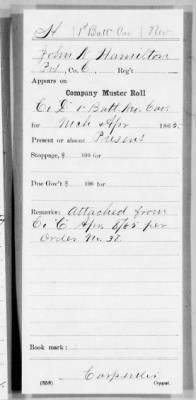 H | 1st Batt Cav | Nev
John D. Hamilton
Pvt, Co. C, Reg't
Appears on
Company Muster Roll
Co. D 1 Batt Nev Cav
for Mch & Apr, 1865.
Present or absent Present
Stoppage, $ 100 for
Due Gov't $ 100 for
Remarks: Attached from
Co. C Apr. 5/65 per
Order No. 30.
Book mark:
Carpenter
(358) Copyist.